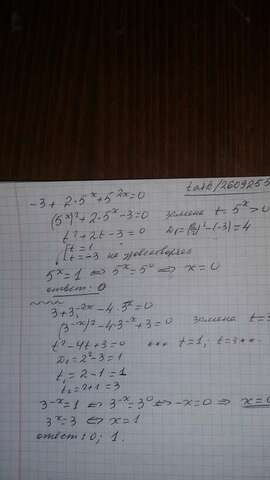 task/2609255
-3 + 2·5^x + 5^2x = 0
(5^x)² + 2·5^x - 3 = 0 замена t = 5^x > 0
t² + 2t - 3 = 0 D₁ = ²-(-3) = 4
[t = 1
t = -3 не удовлетворяет
5^x = 1 ⇔ 5^x = 5^0 ⇔ x = 0
ответ: 0
3 + 3^-2x - 4·3^-x = 0
(3^-x)² - 4·3^-x + 3 = 0 замена t =
t² - 4t + 3 = 0 t = 1; t = 3
D₁ = 2² - 3 = 1
t₁ = 2 - 1 = 1
t₂ = 2 + 1 = 3
3^-x = 1 ⇔ 3^-x = 3^0 ⇔ -x = 0 ⇒ x = 0
3^x = 3 ⇔ x = 1
ответ: 0; 1.